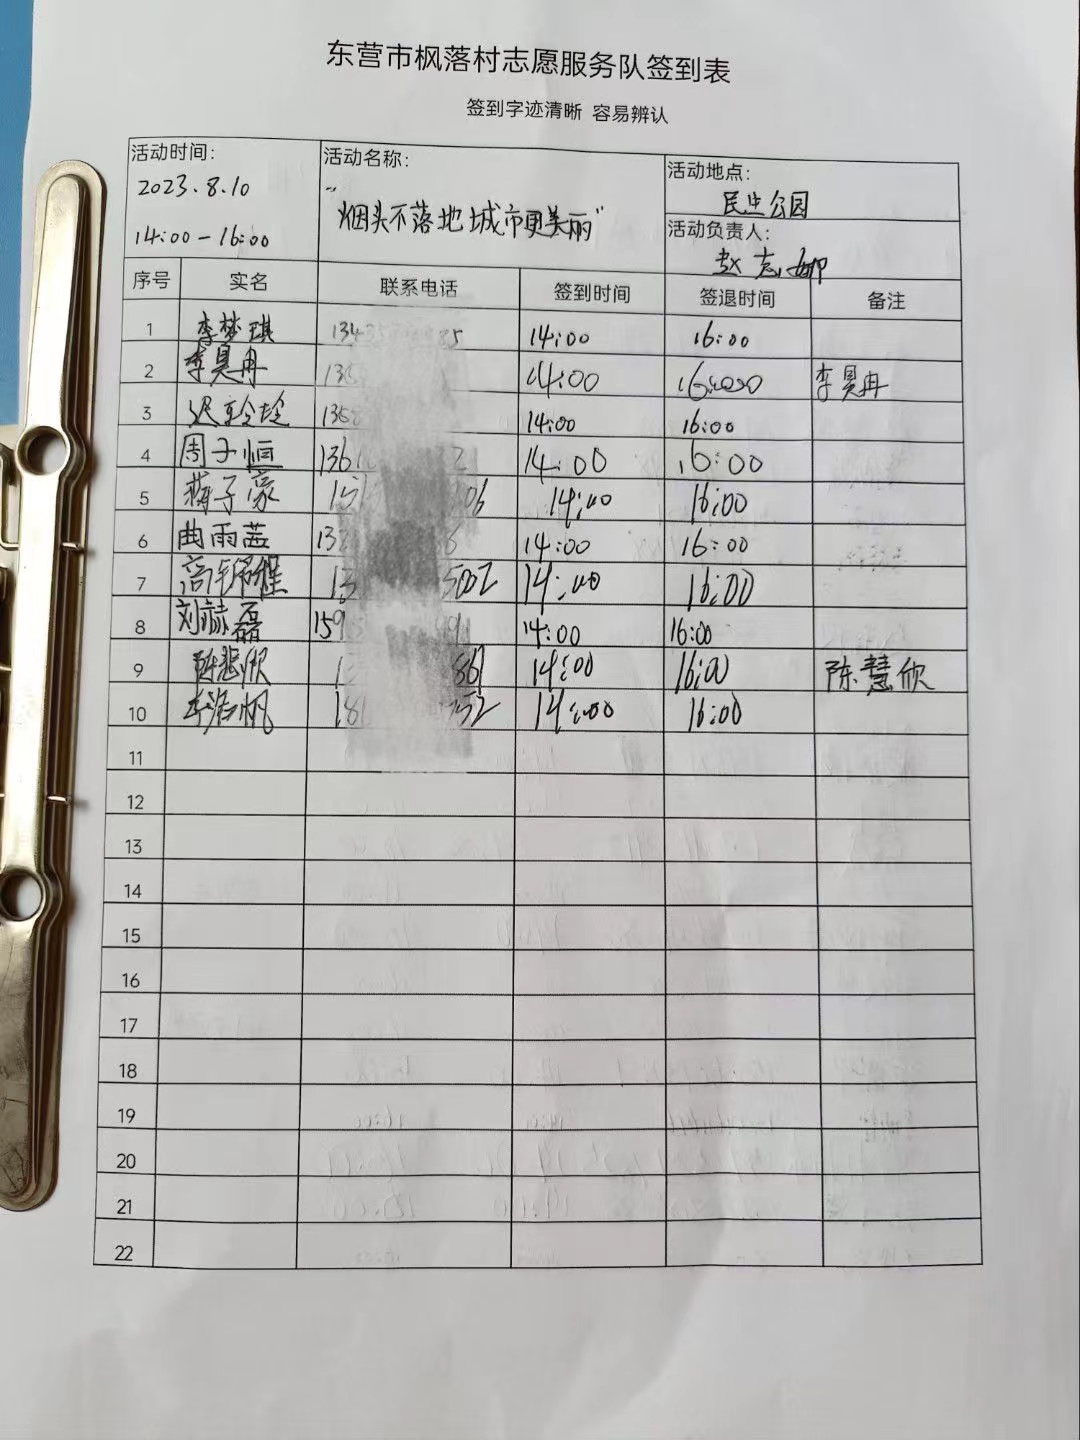 东营市枫落村志愿服务队签到表
签到字迹清晰 容易辨认
活动时间: 活动名称: 活动地点:
2023.8.10 民生公园
14:00-16:00 "烟头不落地城市更美丽" 活动负责人:
赵志娜
序号 实名 联系电话 签到时间 签退时间 备注
1 李梦琪 14:00 16:00
2 李昊冉 14:00 16:00 李昊冉
3 14:00 16:00
4 周子恒 1361 14:00 16:00
5 蒋子豪 06 14:00 16:00
6 曲雨茜 132 6 14:00 16:00
7 5002 14:00 16:00
8 刘赫磊 159 14:00 16:00
9 陈慧欣 361 14:00 16:00 陈慧欣
10 李浩帆 18 52 14:00 16:00
11
12
13
14
15
16
17
18
19
20
21
22